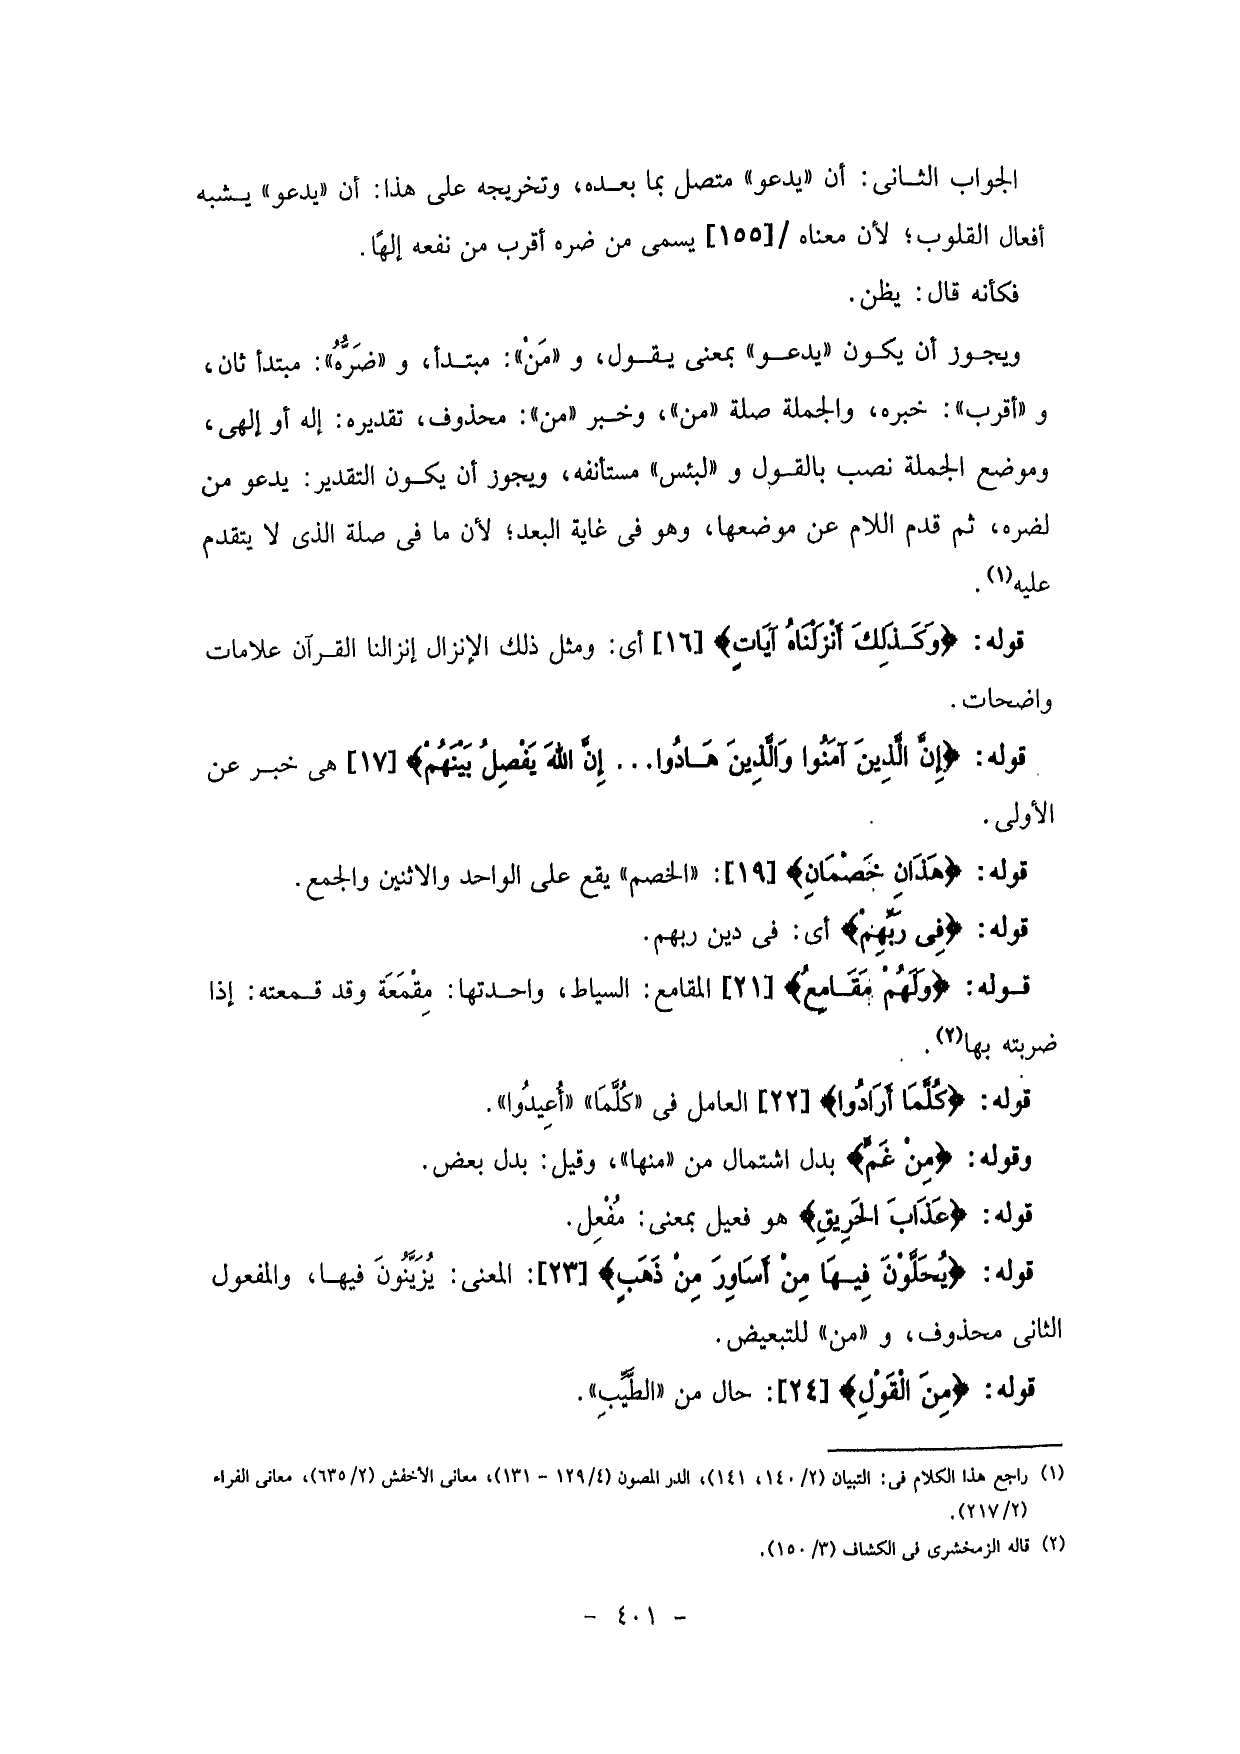 الجواب الثـانى: أن «يدعو» متصل بما بعـده، وتخريجه على هذا: أن «يدعو» يـشبه
أفعال القلوب؛ لأن معناه /[١٥٥] يسمى من ضره أقرب من نفعه إلهًا.
فكأنه قال: يظن.
ويجـوز أن يكـون «يدعـو» بمعنى يـقـول، و «مَنْ»: مبتـدأ، و «ضَرُّهُ»: مبتدأ ثان،
و «أقرب»: خبره، والجملة صلة «من»، وخـبر «من»: محذوف، تقديره: إله أو إلهى،
وموضع الجملة نصب بالقـول و «لبئس» مستأنفه، ويجوز أن يكـون التقدير: يدعو من
لضره، ثم قدم اللام عن موضعها، وهو فى غاية البعد؛ لأن ما فى صلة الذى لا يتقدم
عليه(١).
قوله: ﴿وَكَـذَلِكَ أَنْزَلْنَاهُ آيَاتٍ﴾ [١٦] أى: ومثل ذلك الإنزال إنزالنا القـرآن علامات
واضحات.
قوله: ﴿إِنَّ الَّذِينَ آمَنُوا وَالَّذِينَ هَـادُوا... إِنَّ اللهَ يَفْصِلُ بَيْنَهُمْ﴾ [١٧] هى خبـر عن
الأولى.
قوله: ﴿هَذَانِ خَصْمَانِ﴾ [١٩]: «الخصم» يقع على الواحد والاثنين والجمع.
قوله: ﴿فِى رَبِّهِمْ﴾ أى: فى دين ربهم.
قـوله: ﴿وَلَهُمْ مَقَـامِعُ﴾ [٢١] المقامع: السياط، واحـدتها: مِقْمَعَة وقد قـمعته: إذا
ضربته بها(٢).
قوله: ﴿كُلَّمَا أَرَادُوا﴾ [٢٢] العامل فى «كُلَّمَا» «أُعِيدُوا».
وقوله: ﴿مِنْ غَمٍّ﴾ بدل اشتمال من «منها»، وقيل: بدل بعض.
قوله: ﴿عَذَابَ الحَرِيقِ﴾ هو فعيل بمعنى: مُفْعِل.
قوله: ﴿يُحَلَّوْنَ فِيـهَا مِنْ أَسَاوِرَ مِنْ ذَهَبٍ﴾ [٢٣]: المعنى: يُزَيَّنُونَ فيهـا، والمفعول
الثانى محذوف، و «من» للتبعيض.
قوله: ﴿مِنَ الْقَوْلِ﴾ [٢٤]: حال من «الطَّيِّبِ».
(١) راجع هذا الكلام فى: التبيان (٢/ ١٤٠، ١٤١)، الدر المصون (٤/ ١٢٩ - ١٣١)، معانى الأخفش (٢/ ٦٣٥)، معانى الفراء
(٢/ ٢١٧).
(٢) قاله الزمخشرى فى الكشاف (٣/ ١٥٠).
- ٤٠١ -